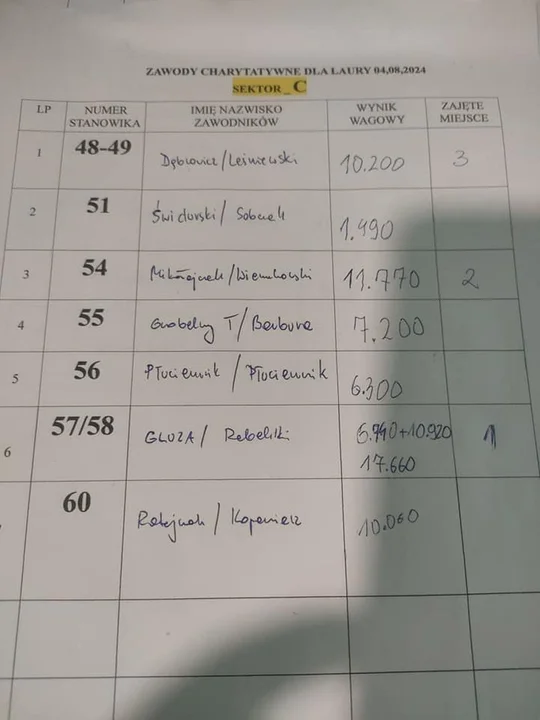 ZAWODY CHARYTATYWNE DLA LAURY 04,08,2024
SEKTOR_C
LP NUMER STANOWIKA IMIĘ NAZWISKO ZAWODNIKÓW WYNIK WAGOWY ZAJĘTE MIEJSCE
1 48-49 Dębowicz/Leśniewski 10.200 3
2 51 Świdurski/Sobczak 1.490
3 54 Mikołajczak/ 11.770 2
4 55 Grobelny T/Barbura 7.200
5 56 Płuciennik/Płuciennik 6.300
6 57/58 GLUZA/Rebelski 6.740+10.920 1
17.660
60 Ratajczak/ 10.060